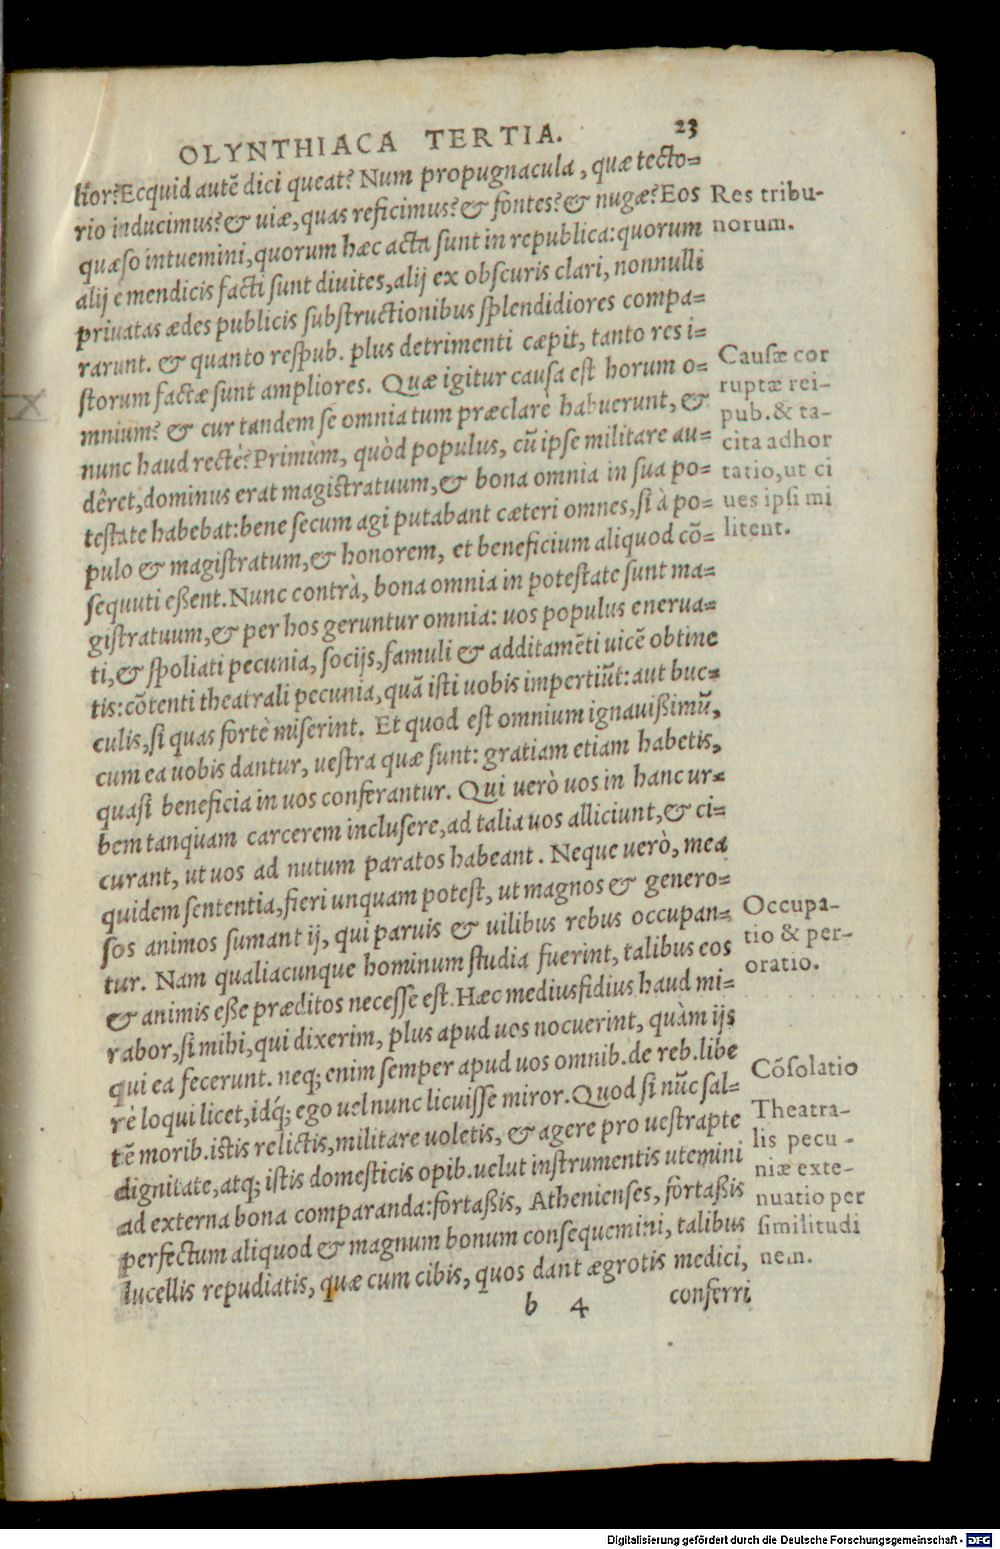 OLYNTHIACA TERTIA. 23
lior? Ecquid autẽ dici queat? Num propugnacula, quæ tecto-
rio inducimus? & uiæ, quas reficimus? & fontes? & nugæ? Eos
quæso intuemini, quorum hæc acta sunt in republica: quorum
alij e mendicis facti sunt diuites, alij ex obscuris clari, nonnulli
priuatas ædes publicis substructionibus splendidiores compa-
rarunt. & quanto respub. plus detrimenti cæpit, tanto res i-
storum factæ sunt ampliores. Quæ igitur causa est horum o-
mnium? & cur tandem se omnia tum præclarè habuerunt, &
nunc haud rectè? Primùm, quòd populus, cũ ipse militare au-
dêret, dominus erat magistratuum, & bona omnia in sua po-
testate habebat: bene secum agi putabant cæteri omnes, si à po-
pulo & magistratum, & honorem, et beneficium aliquod cõ-
sequuti essent. Nunc contrà, bona omnia in potestate sunt ma-
gistratuum, & per hos geruntur omnia: uos populus enerua-
ti, & spoliati pecunia, socijs, famuli & additamẽti uicẽ obtine
tis: cõtenti theatrali pecunia, quã isti uobis impertiũt: aut buc-
culis, si quas fortè miserint. Et quod est omnium ignauissimũ,
cum ea uobis dantur, uestra quæ sunt: gratiam etiam habetis,
quasi beneficia in uos conferantur. Qui uerò uos in hanc ur-
bem tanquam carcerem inclusere, ad talia uos alliciunt, & ci-
curant, ut uos ad nutum paratos habeant. Neque uerò, mea
quidem sententia, fieri unquam potest, ut magnos & genero-
sos animos sumant ij, qui paruis & uilibus rebus occupan-
tur. Nam qualiacunque hominum studia fuerint, talibus eos
& animis esse præditos necesse est. Hæc mediusfidius haud mi-
rabor, si mihi, qui dixerim, plus apud uos nocuerint, quàm ijs
qui ea fecerunt. neq; enim semper apud uos omnib. de reb. libe
rè loqui licet, idq́; ego uel nunc licuisse miror. Quod si nũc sal-
tẽ morib. istis relictis, militare uoletis, & agere pro uestrapte
dignitate, atq; istis domesticis opib. uelut instrumentis utemini
ad externa bona comparanda: fortassis, Athenienses, fortassis
perfectum aliquod & magnum bonum consequemini, talibus
lucellis repudiatis, quæ cum cibis, quos dant ægrotis medici,
b 4 conferri
Res tribu-
norum.
Causæ cor
ruptæ rei-
pub. & ta-
cita adhor
tatio, ut ci
ues ipsi mi
litent.
Occupa-
tio & per-
oratio.
Cõsolatio
Theatra-
lis pecu-
niæ exte-
nuatio per
similitudi
nem.
Digitalisierung gefördert durch die Deutsche Forschungsgemeinschaft - DFG